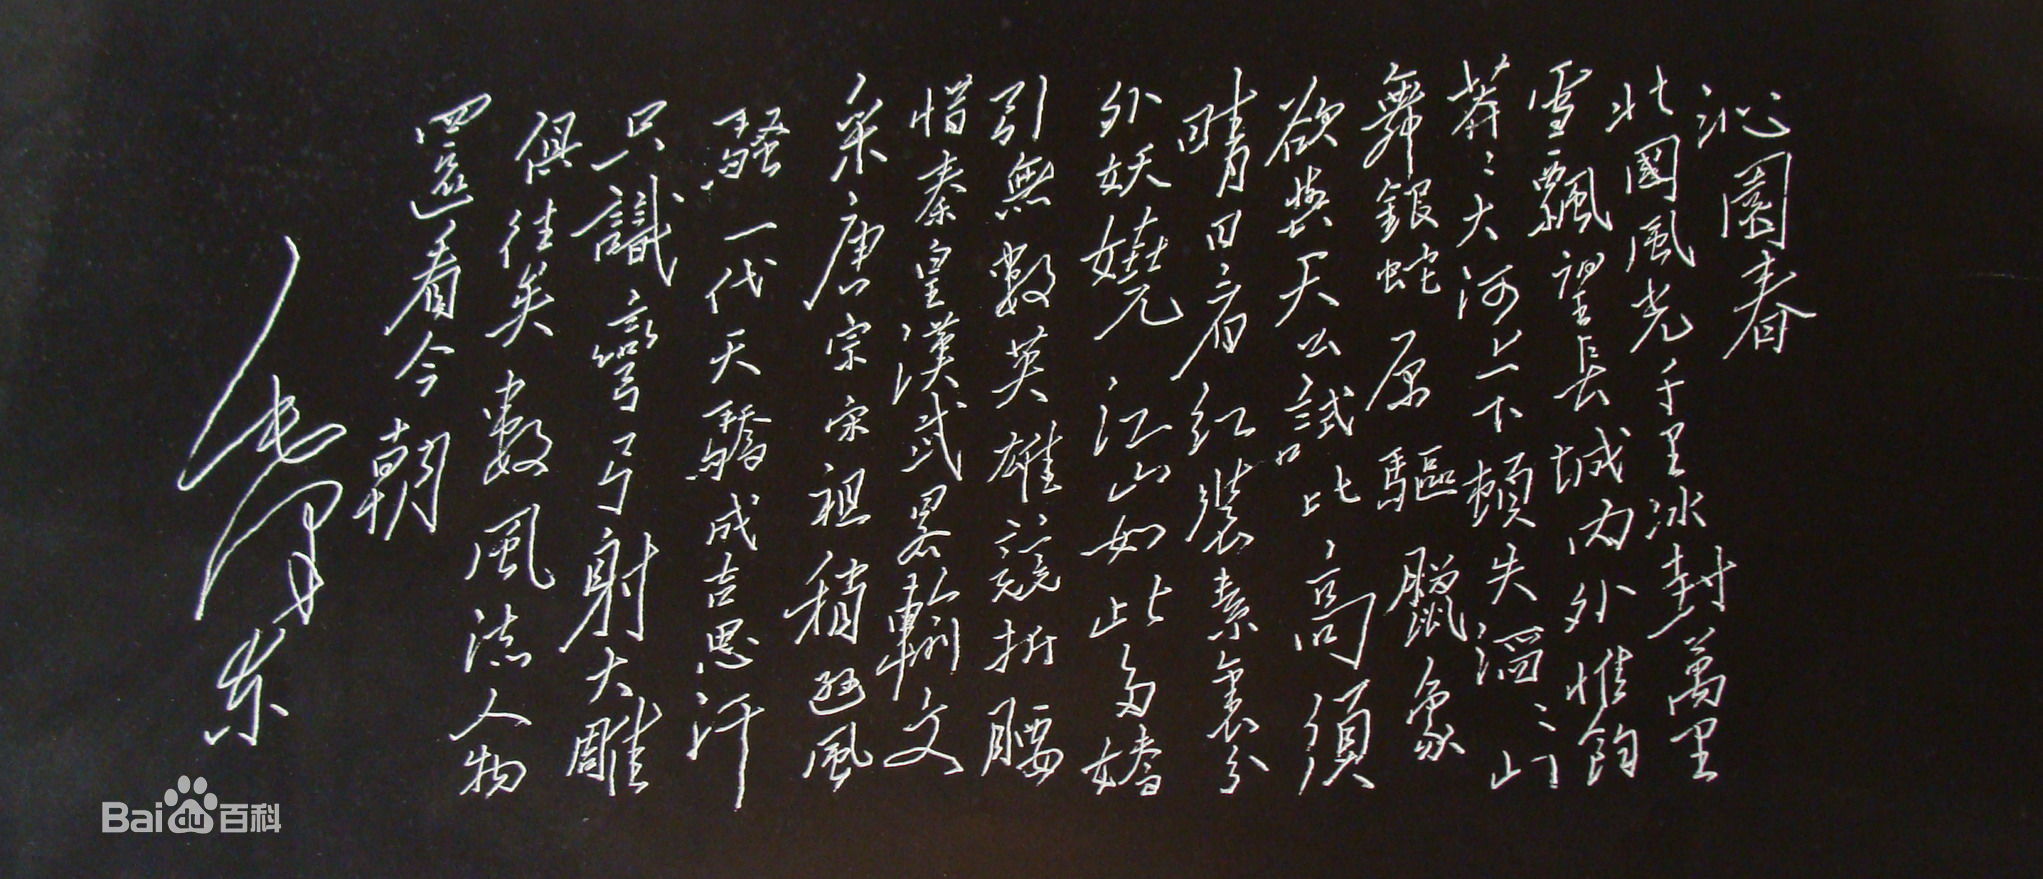 沁園春
北國風光千里冰封萬里
雪飄望長城内外惟餘
莽〻大河上下頓失滔〻山
舞銀蛇原驅臘象
欲與天公試比高須
晴日看紅裝素裹分
外妖嬈江山如此多嬌
引無數英雄競折腰
惜秦皇漢武畧輸文
采唐宗宋祖稍遜風
騷一代天驕成吉思汗
只識彎弓射大雕
俱往矣數風流人物
還看今朝
毛澤東
Bai百科